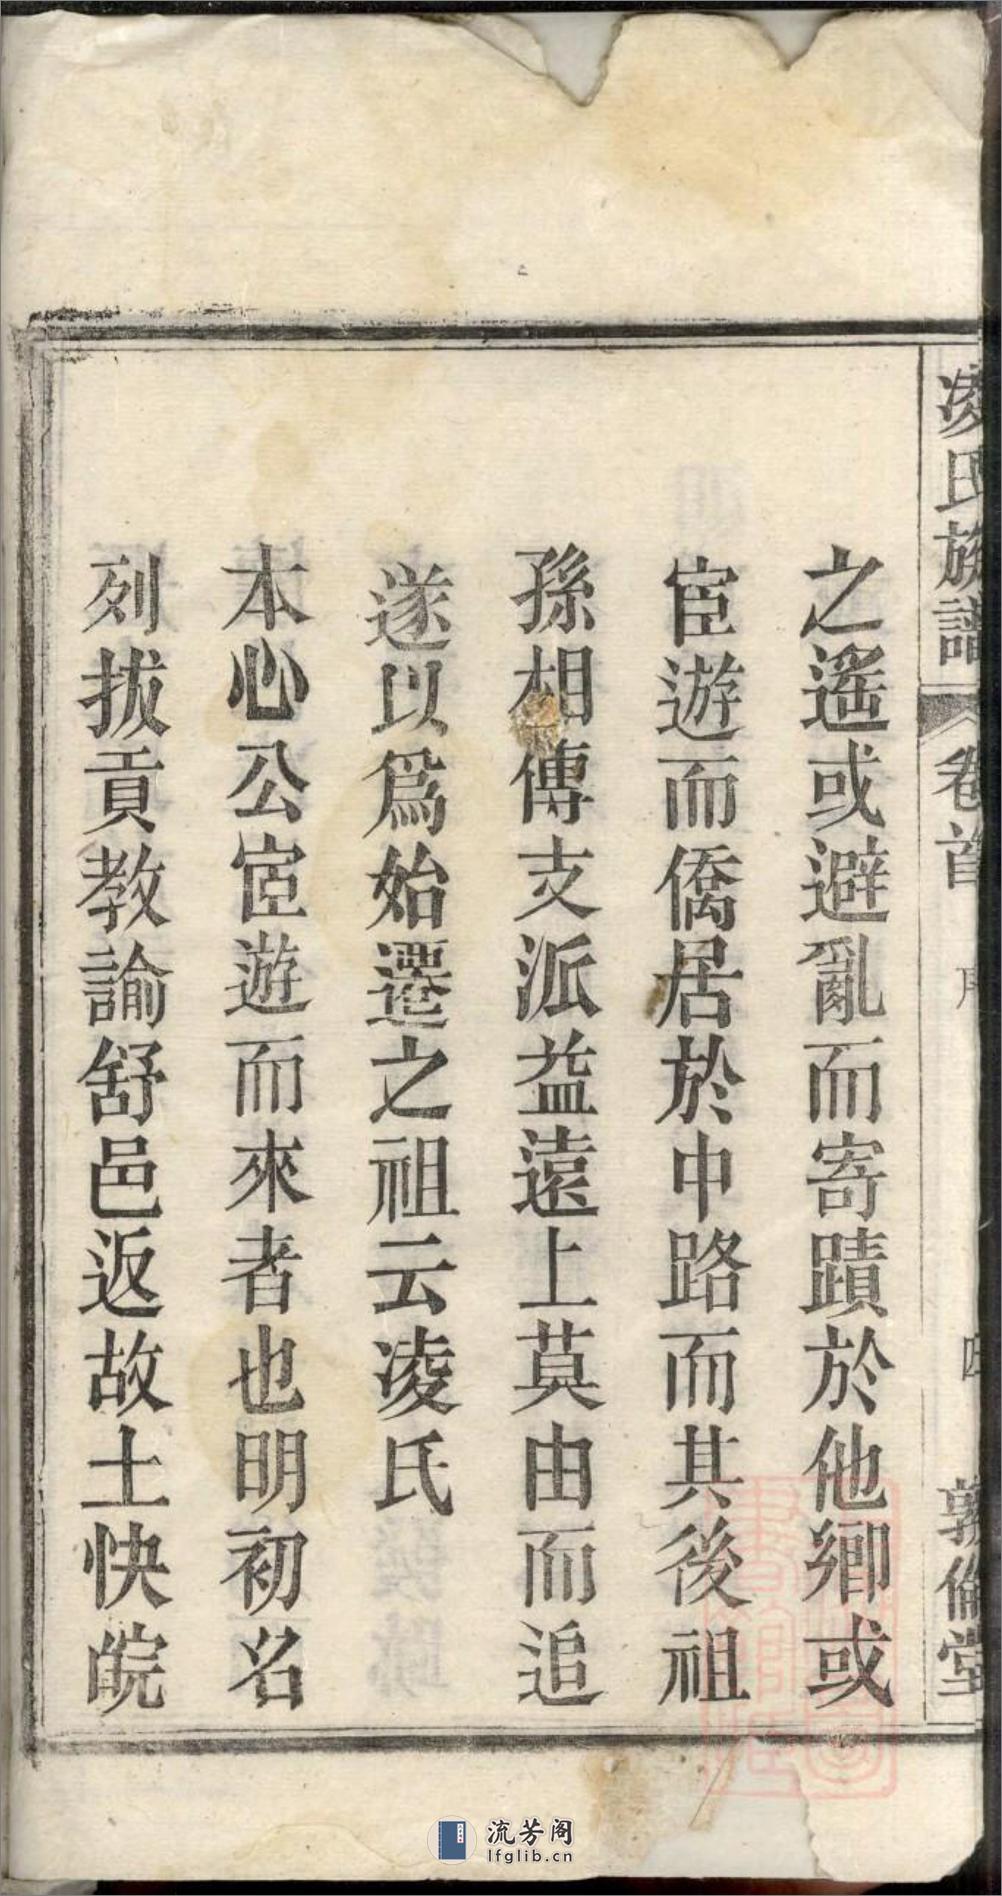 凌氏族譜
卷首
序
四
敦倫堂
之遥或避亂而寄蹟於他鄉或
宦遊而僑居於中路而其後祖
孫相傳支派益遠上莫由而追
遂以爲始遷之祖云凌氏
本心公宦遊而來者也明初名
列拔貢教諭舒邑返故土快皖
流芳阁
lfglib.cn